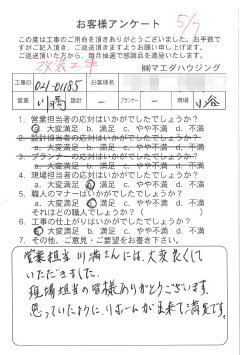 お客様アンケート 5/7
この度は工事のご用命を頂きありがとうございました。お手数で
すがご記入頂き、ご返送頂きますようお願い申し上げます。
ご返送頂いた方から、毎月抽選で感謝品を進呈いたします。
改装工事 ㈱マエダハウジング
工事ID 021-01185 お客様名
営業 川満 設計 − プランナー − 現場 小谷
1. 営業担当者の応対はいかがでしたでしょうか?
a. 大変満足 b. 満足 c. やや不満 d. 不満
2. 設計担当者の応対はいかがでしたでしょうか?
a. 大変満足 b. 満足 c. やや不満 d. 不満
3. プランナーの応対はいかがでしたでしょうか?
a. 大変満足 b. 満足 c. やや不満 d. 不満
4. 現場担当者の応対はいかがでしたでしょうか?
a. 大変満足 b. 満足 c. やや不満 d. 不満
5. 職人のマナーはいかがでしたでしょうか?
a. 大変満足 b. 満足 c. やや不満 d. 不満
それはどの職人でしょうか( )
6. 工事の仕上がりはいかがでしたでしょうか?
a. 大変満足 b. 満足 c. やや不満 d. 不満
7. その他、ご意見・ご要望をお書き下さい。
営業担当川満さんには、大変良くして
いただきました。
現場担当の皆様ありがとうございます。
思っていたようにリホームが出来て満足です。